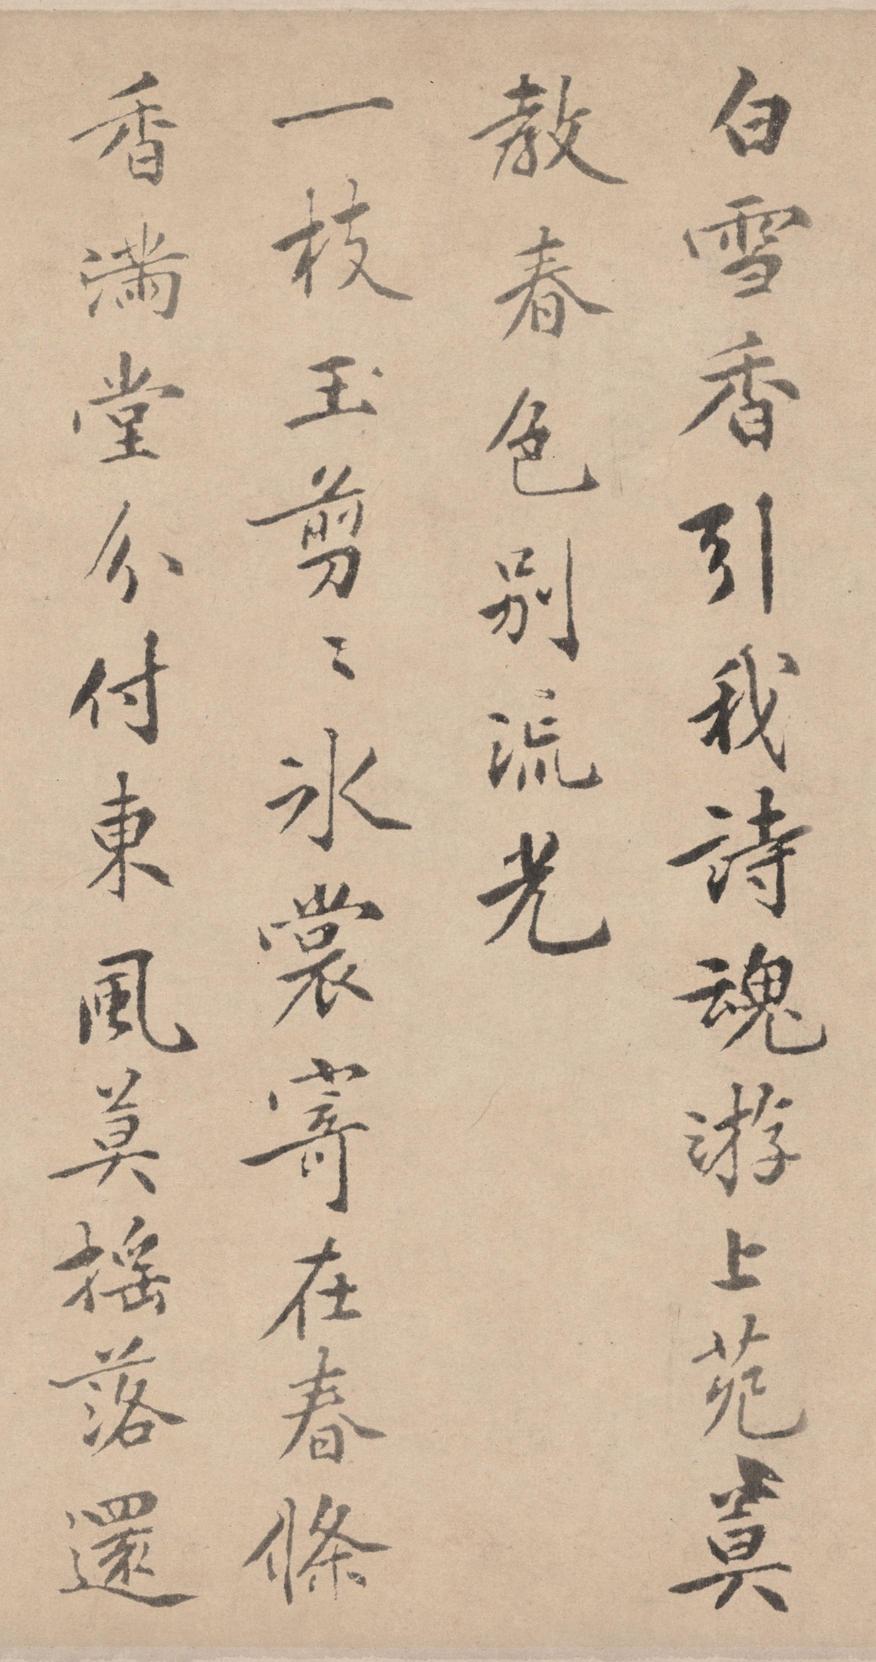 白雪香引我詩魂游上苑莫
教春色別流光
一枝玉剪〻氷裳寄在春條
香滿堂分付東風莫摇落還